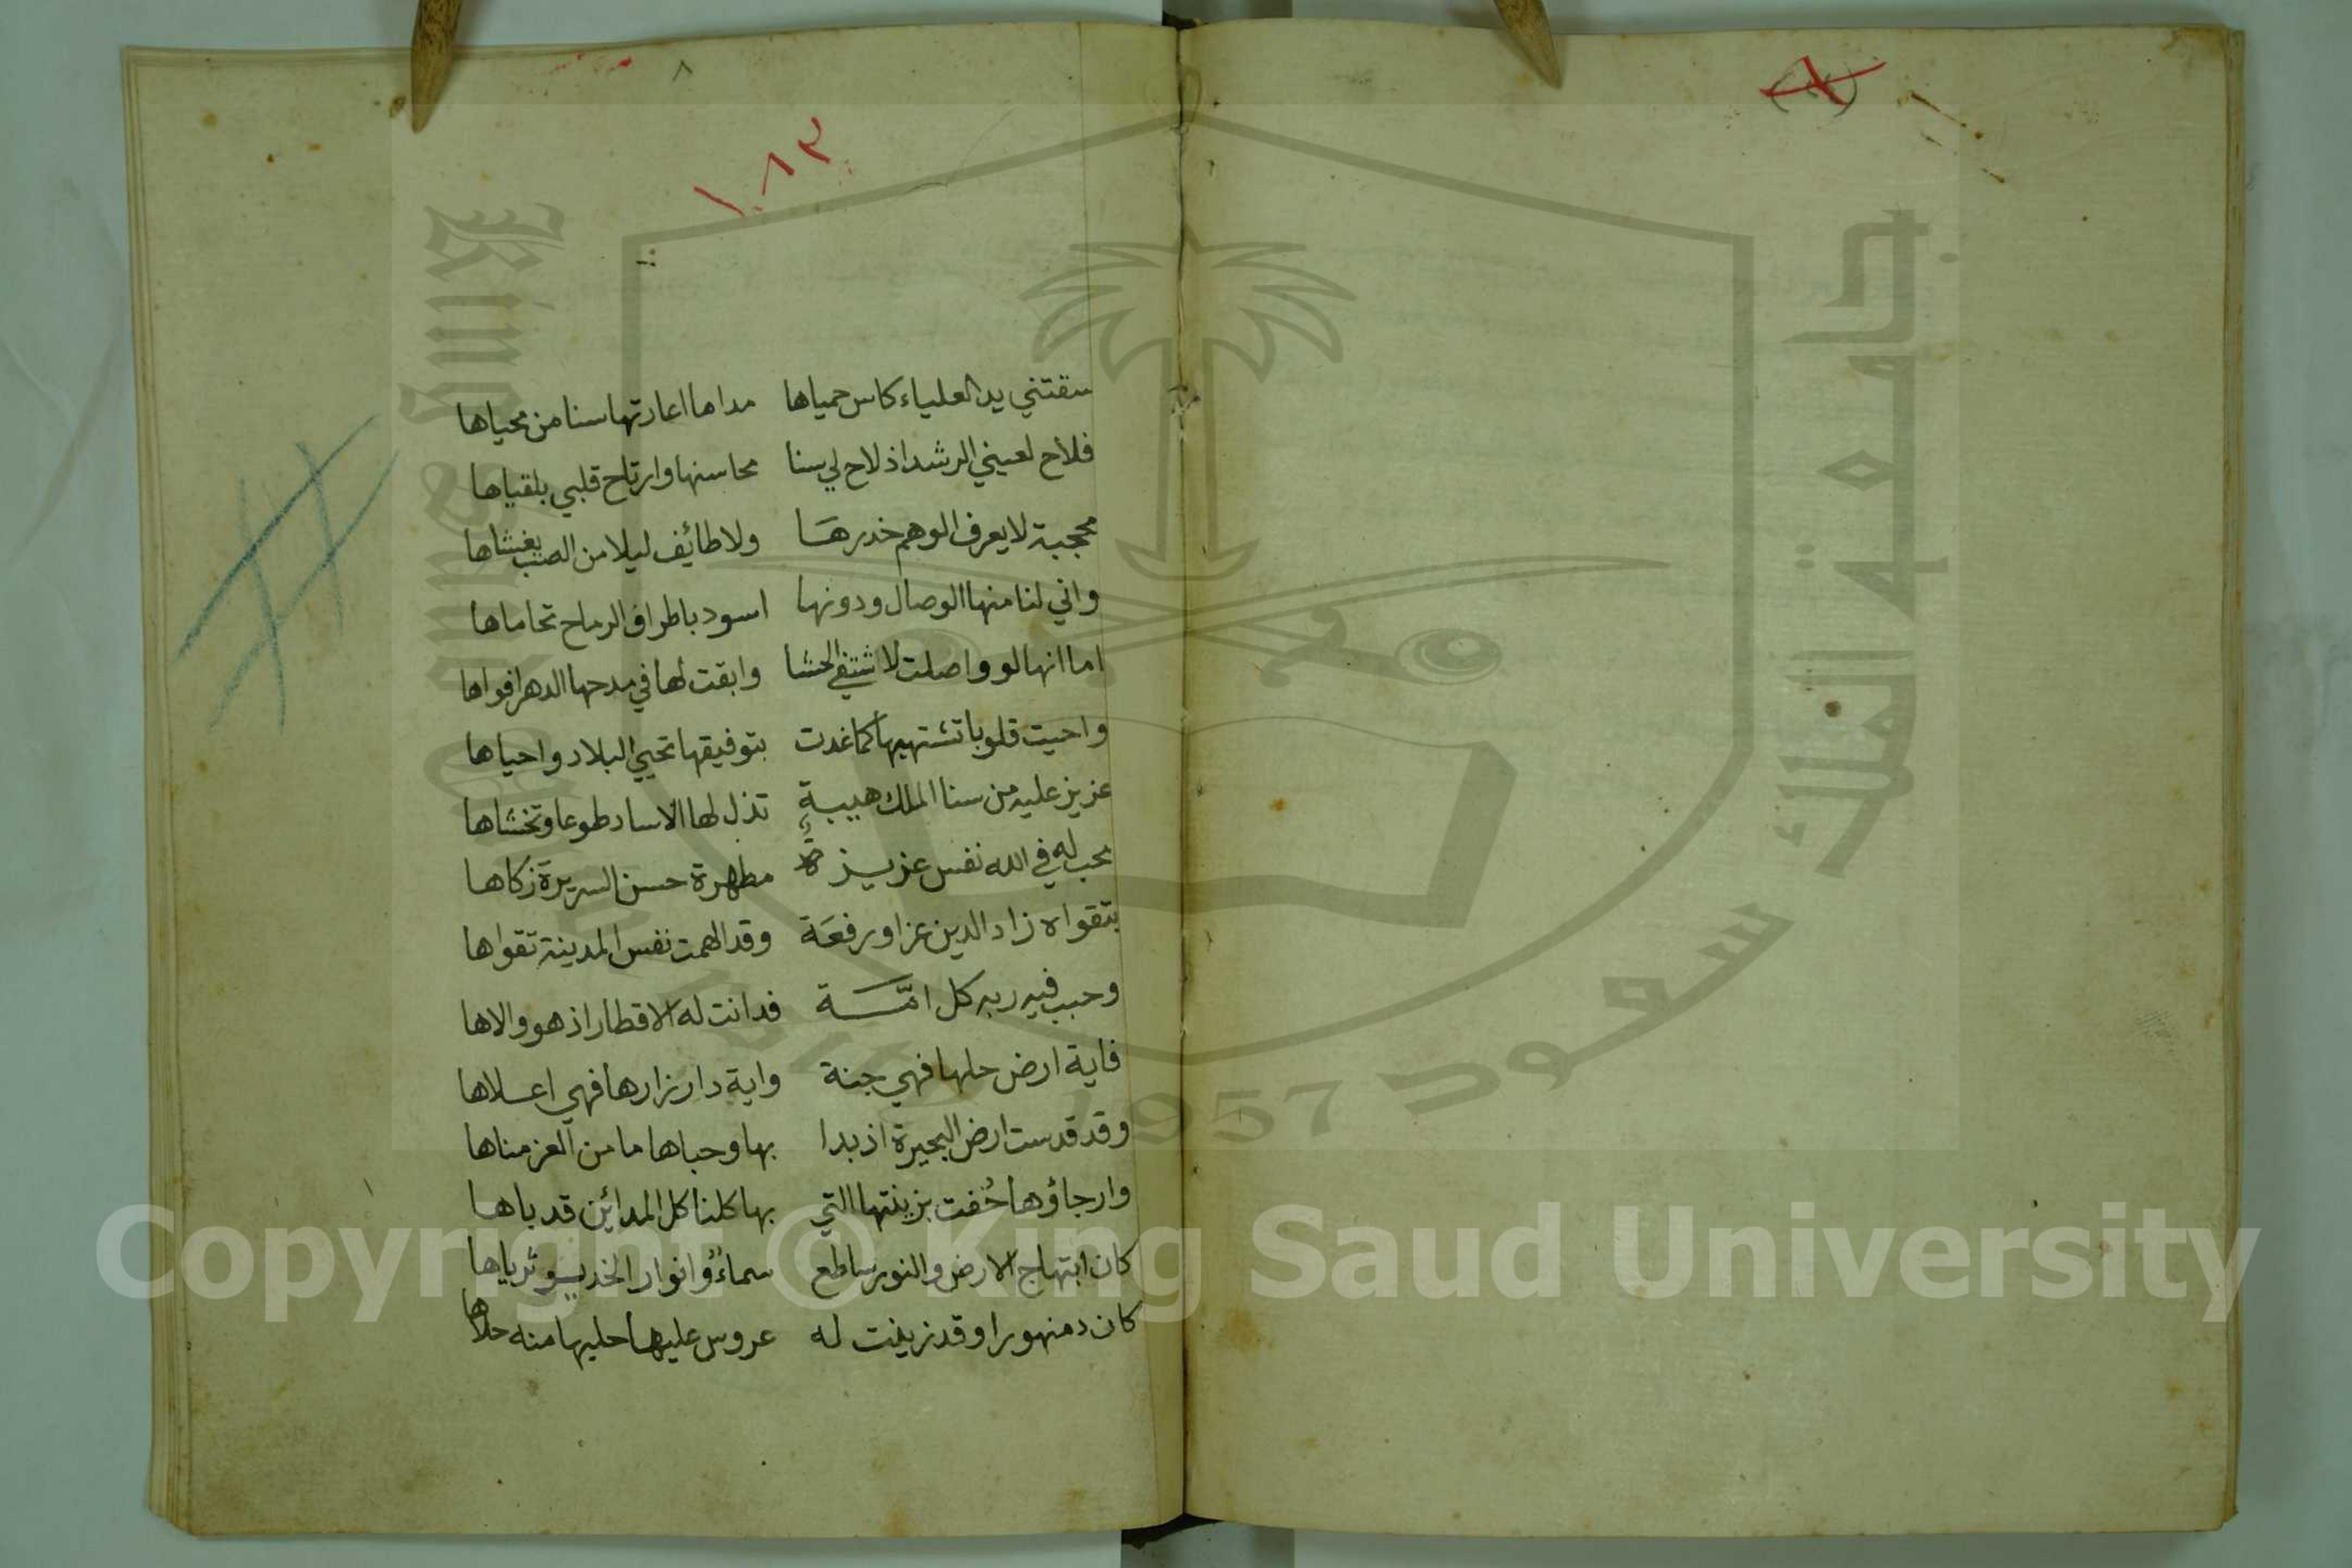 ٨
١٠٨٣
سقتني يد العلياء كاس حمياها مداما اعارتها سنا من محياها
فلاح لعيني الرشد اذ لاح لي سنا محاسنها وارتاح قلبي بلقياها
محجبة لا يعرف الوهم خدرها ولا طائف ليلا من الصب يغشاها
واني لنا منها الوصال ودونها اسود باطراف الرماح تحاماها
اما انها لو واصلت لاشتفي الحشا وابقت لها في مدحها الدهر افواها
واحيت قلوبا تشتهيها كما غدت بتوفيقها تحيي البلاد واحياها
عزيز عليه من سنا الملك هيبةٍ تذل لها الاساد طوعا وتخشاها
محب له في الله نفس عزيزة مطهرة حسن السريرة زكاها
بتقواه زاد الدين عزا ورفعَة وقد الهمت نفس المدينة تقواها
وحبب فيه ربه كل امّة فدانت له الاقطار اذ هو والاها
فاية ارض حلها فهي جنة واية دار زارها فهي اعلاها
وقد قدست ارض البحيرة اذ بدا بها وحباها ما من العز مناها
وارجاؤها حُفت بزينتها التي بها كلنا كل المدائن قد باها
كان ابتهاج الارض والنور ساطع سماءٌ وانوار الخديو ثرياها
كان دمنهورا وقد زينت له عروس عليها حليها منه حلاها
King Saud University
جامعة الملك سعود
1957
Copyright © King Saud University